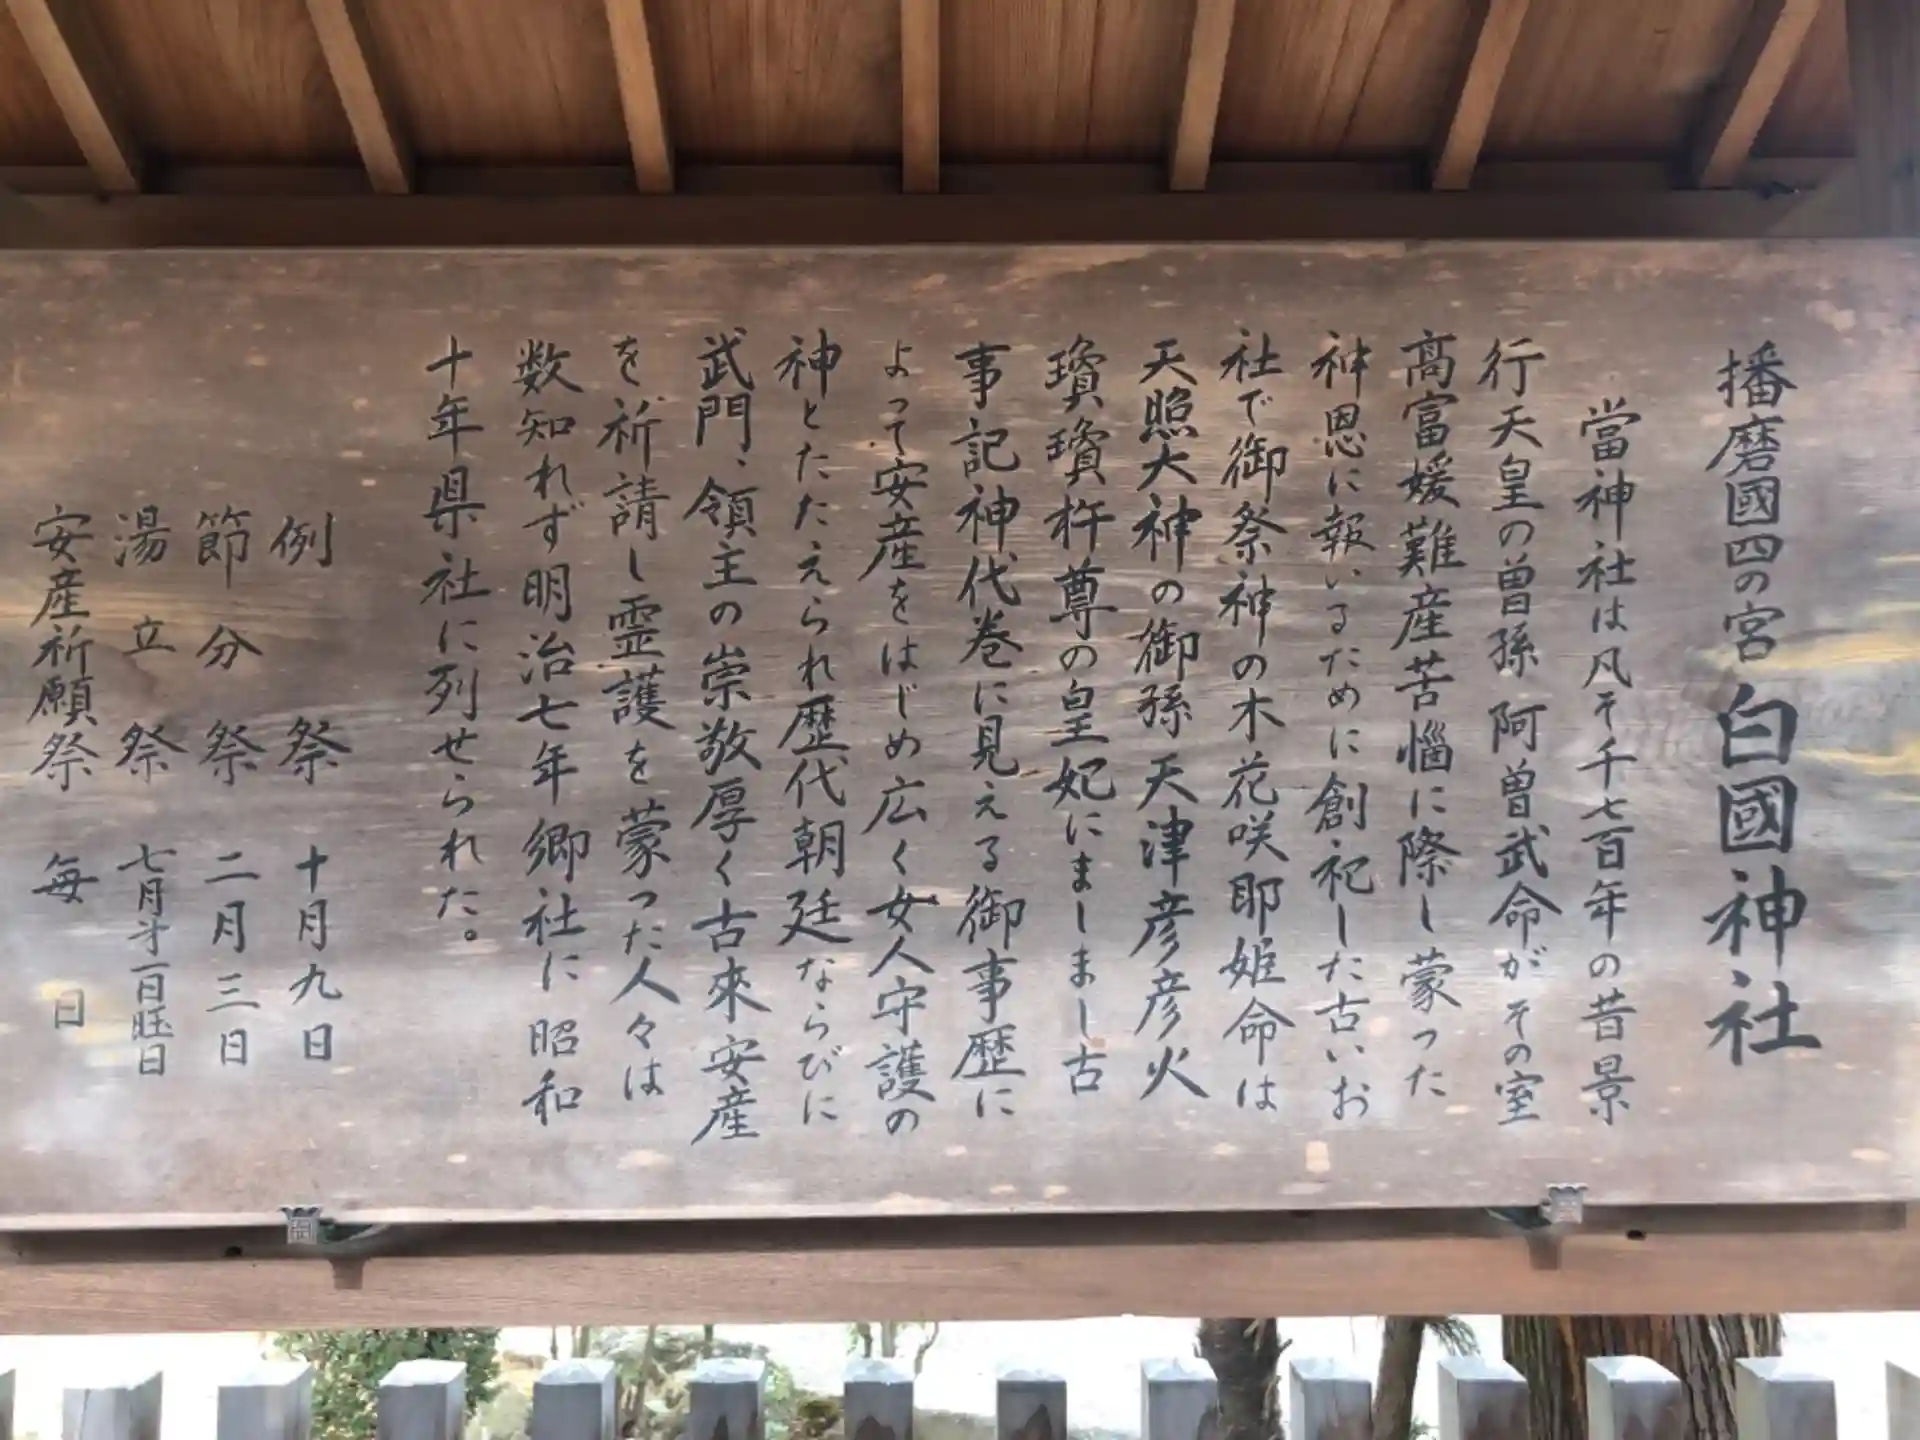 播磨國四の宮 白國神社
當神社は凡そ千七百年の昔景
行天皇の曽孫 阿曽武命がその室
高富媛難産苦惱に際し蒙った
神恩に報いるために創祀した古いお
社で御祭神の木花咲耶姫命は
天照大神の御孫 天津彦彦火
瓊瓊杵尊の皇妃にましまし古
事記神代巻に見える御事歴に
よって安産をはじめ広く女人守護の
神とたたえられ歴代朝廷ならびに
武門、領主の崇敬厚く古來安産
を祈請し霊護を蒙った人々は
数知れず明治七年郷社に昭和
十年県社に列せられた。
例祭 十月九日
節分祭 二月三日
湯立祭 七月才一日旺日
安産祈願祭 毎日